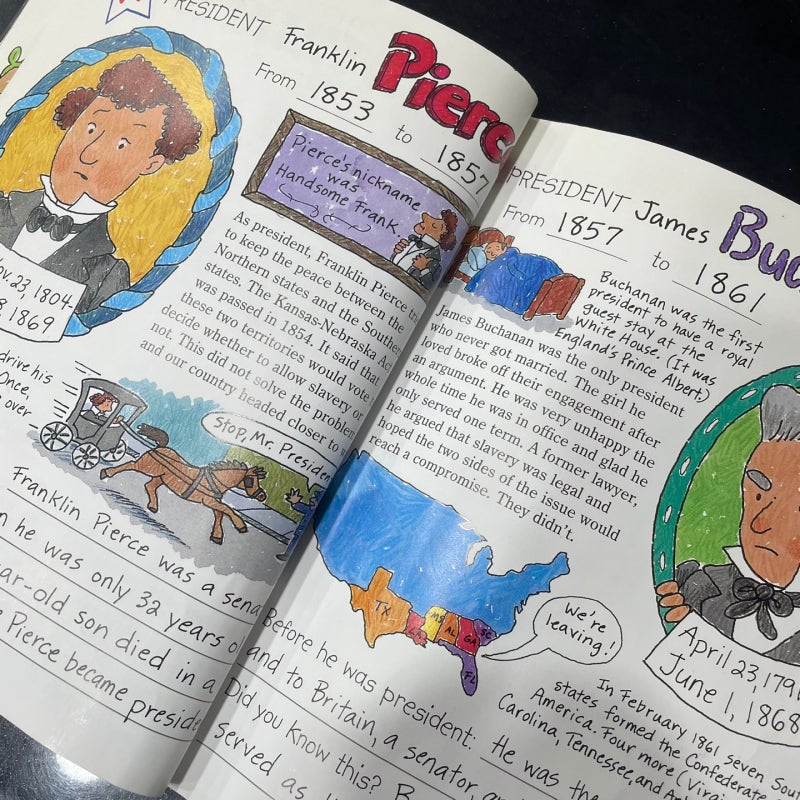 PRESIDENT Franklin Pierc
From 1853 to 1857
Pierce's nickname
was
Handsome Frank.
As president, Franklin Pierce
to keep the peace between the
Northern states and the Southern
states. The Kansas-Nebraska Act
was passed in 1854. It said that
these two territories would vote
decide whether to allow slavery or
not. This did not solve the problem
and our country headed closer to
23, 1804
8, 1869
drive his
Once,
over
Stop, Mr. Presiden
Franklin Pierce was a sena
n he was only 32 years o
ar-old son died in a
Pierce became preside
PRESIDENT James Bu
From 1857 to 1861
Buchanan was the first
president to have a royal
guest stay at the
White House. (It was
England's Prince Albert.)
James Buchanan was the only president
who never got married. The girl he
loved broke off their engagement after
an argument. He was very unhappy the
whole time he was in office and glad he
only served one term. A former lawyer,
he argued that slavery was legal and
hoped the two sides of the issue would
reach a compromise. They didn't.
TX
LA
MS
AL
GA
SC
FL
We're
leaving!
April 23, 179
June 1, 1868
In February 1861 seven Sout
states formed the Confederate
America. Four more (Virgi
Carolina, Tennessee, and
Before he was president.
and to Britain, a senator,
Did you know this?
served as
He was the